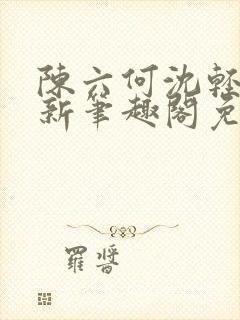 陳六何沈輕
新筆趣閣免
羅醬